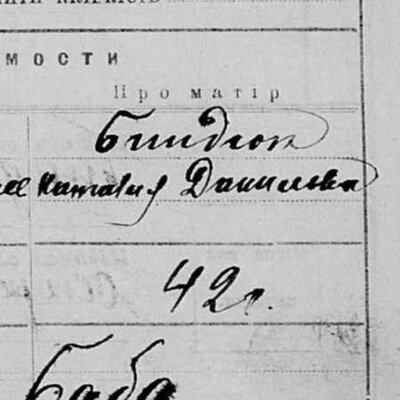 мости
Про матір
Биндюк
Наталія Данилівна
42 р.
Баба